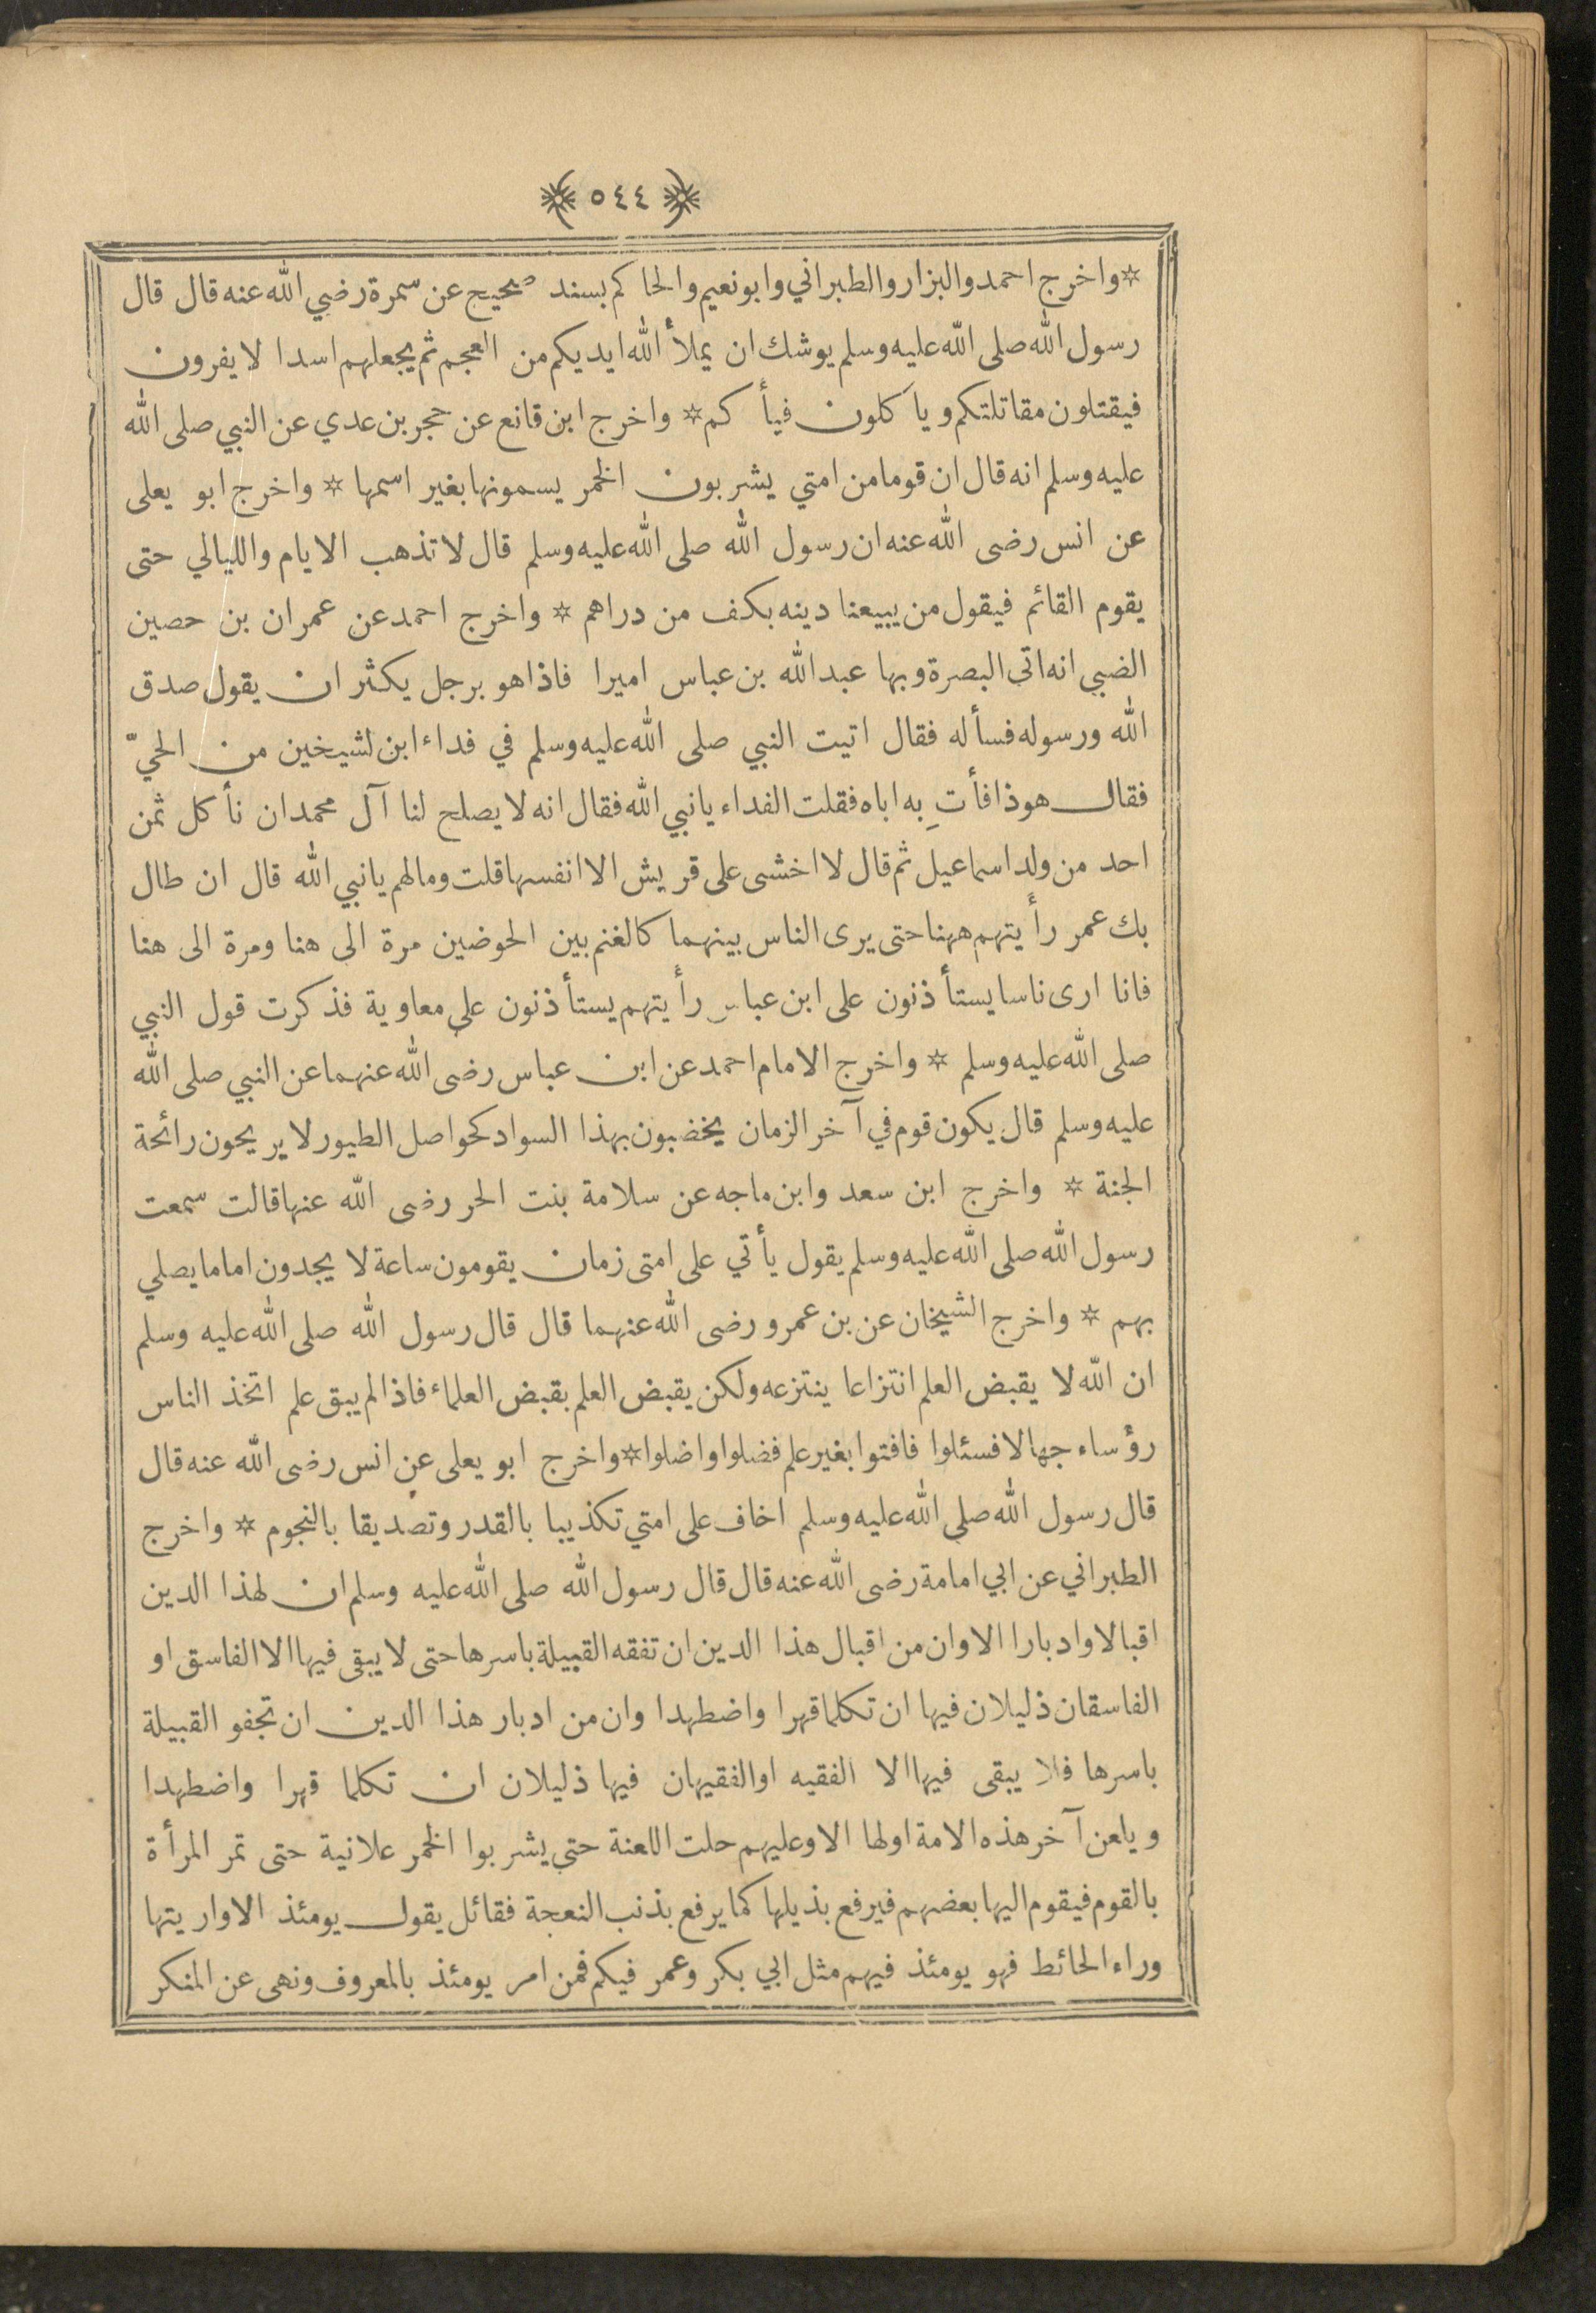 ٥٤٤
☆ واخرج احمد والبزار والطبراني وابونعيم والحاكم بسند صحيح عن سمرة رضي الله عنه قال قال
رسول الله صلى الله عليه وسلم يوشك ان يملأ الله ايديكم من العجم ثم يجعلهم اسدا لا يفرون
فيقتلون مقاتلتكم وياكلون فيأكم ☆ واخرج ابن قانع عن حجر بن عدي عن النبي صلى الله
عليه وسلم انه قال ان قوما من امتي يشربون الخمر يسمونها بغير اسمها ☆ واخرج ابو يعلى
عن انس رضى الله عنه ان رسول الله صلى الله عليه وسلم قال لا تذهب الايام والليالي حتى
يقوم القائم فيقول من يبيعنا دينه بكف من دراهم ☆ واخرج احمد عن عمران بن حصين
الضبي انه اتى البصرة وبها عبد الله بن عباس اميرا فاذا هو برجل يكثر ان يقول صدق
الله ورسوله فسأله فقال اتيت النبي صلى الله عليه وسلم في فداء ابن لشيخين من الحيّ
فقال هوذا فأتِ به اباه فقلت الفداء يا نبي الله فقال انه لا يصلح لنا آل محمد ان نأكل ثمن
احد من ولد اسماعيل ثم قال لا اخشى على قريش الا انفسها قلت وما لهم يا نبي الله قال ان طال
بك عمر رأيتهم ههنا حتى يرى الناس بينهما كالغنم بين الحوضين مرة الى هنا ومرة الى هنا
فانا ارى ناسا يستأذنون على ابن عباس رأيتهم يستأذنون على معاوية فذكرت قول النبي
صلى الله عليه وسلم ☆ واخرج الامام احمد عن ابن عباس رضى الله عنهما عن النبي صلى الله
عليه وسلم قال يكون قوم في آخر الزمان يخضبون بهذا السواد كحواصل الطيور لا يريحون رائحة
الجنة ☆ واخرج ابن سعد وابن ماجه عن سلامة بنت الحر رضى الله عنها قالت سمعت
رسول الله صلى الله عليه وسلم يقول يأتي على امتى زمان يقومون ساعة لا يجدون اماما يصلي
بهم ☆ واخرج الشيخان عن بن عمرو رضى الله عنهما قال قال رسول الله صلى الله عليه وسلم
ان الله لا يقبض العلم انتزاعا ينتزعه ولكن يقبض العلم بقبض العلماء فاذا لم يبق علم اتخذ الناس
رؤساء جهالا فسئلوا فافتوا بغير علم فضلوا واضلوا ☆ واخرج ابو يعلى عن انس رضى الله عنه قال
قال رسول الله صلى الله عليه وسلم اخاف على امتي تكذيبا بالقدر وتصديقا بالنجوم ☆ واخرج
الطبراني عن ابي امامة رضى الله عنه قال قال رسول الله صلى الله عليه وسلم ان لهذا الدين
اقبالا وادبارا الا وان من اقبال هذا الدين ان تفقه القبيلة باسرها حتى لا يبقى فيها الا الفاسق او
الفاسقان ذليلان فيها ان تكلما قهرا واضطهدا وان من ادبار هذا الدين ان تجفو القبيلة
باسرها فلا يبقى فيها الا الفقيه او الفقيهان فيها ذليلان ان تكلما قهرا واضطهدا
ويلعن آخر هذه الامة اولها الا وعليهم حلت اللعنة حتى يشربوا الخمر علانية حتى تمر المرأة
بالقوم فيقوم اليها بعضهم فيرفع بذيلها كما يرفع بذنب النعجة فقائل يقول يومئذ الا واريتها
وراء الحائط فهو يومئذ فيهم مثل ابي بكر وعمر فيكم فمن امر يومئذ بالمعروف ونهى عن المنكر